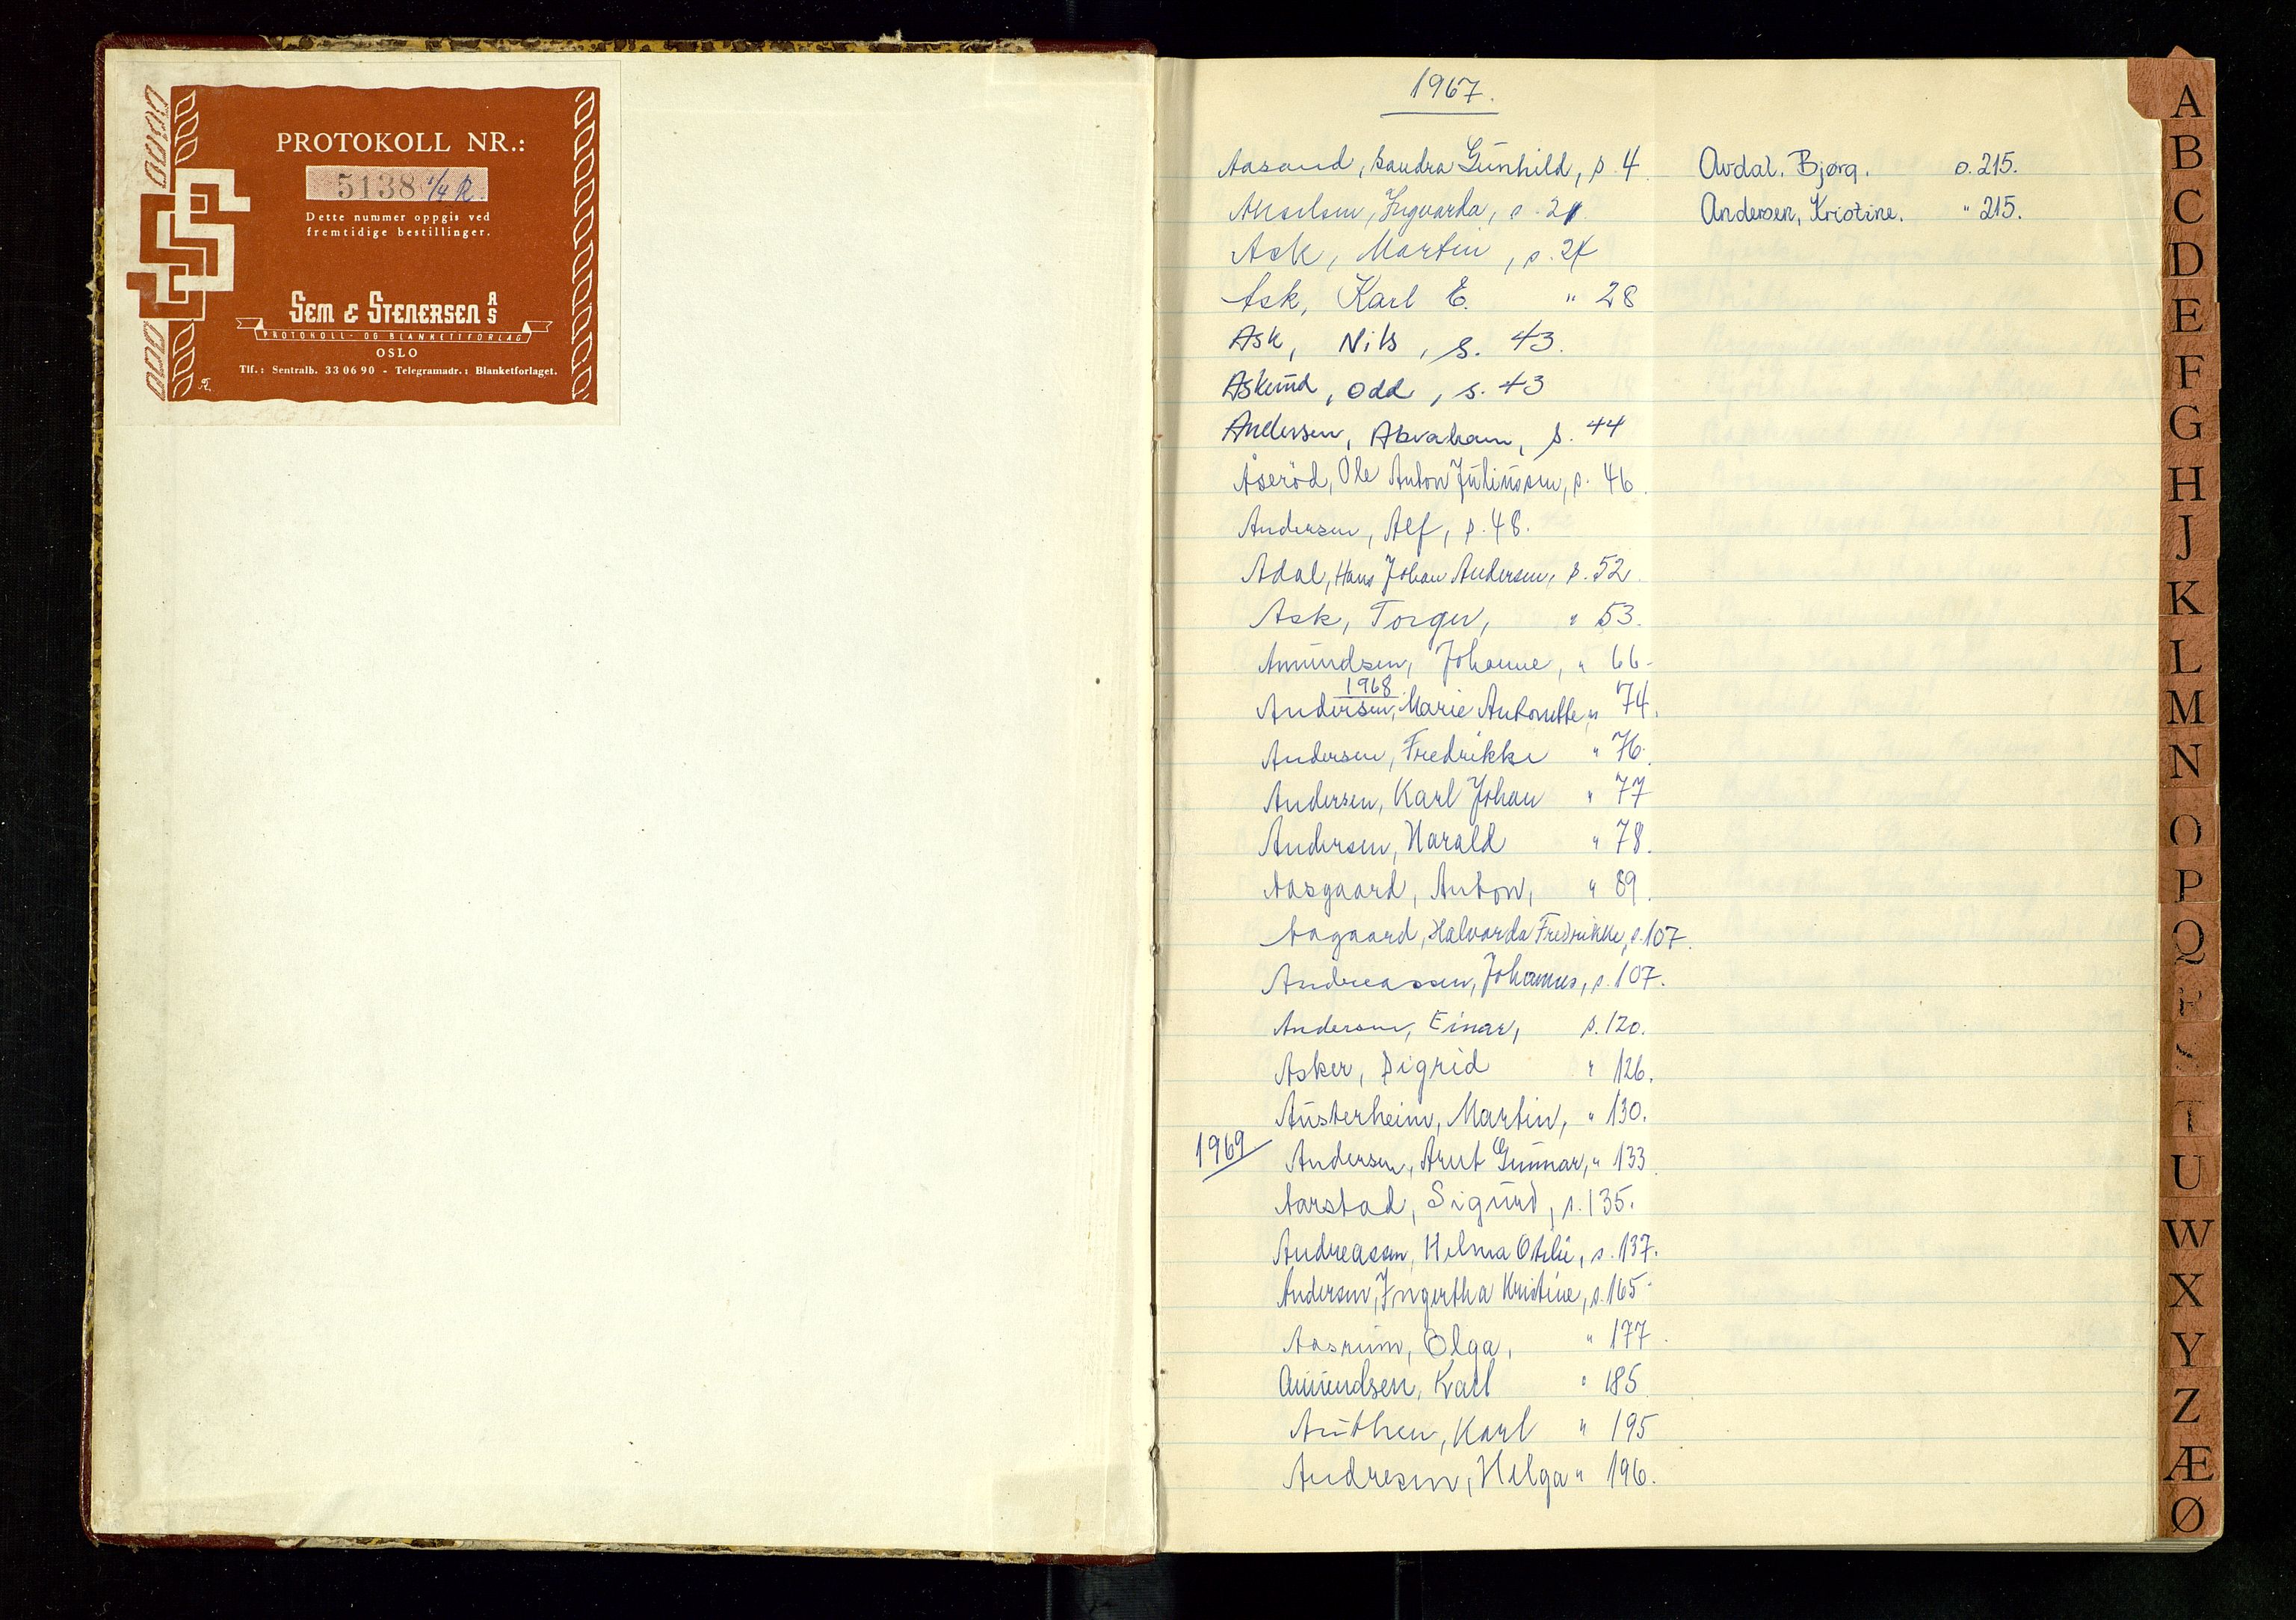 PROTOKOLL NR.:
5138 1/4 R.
Dette nummer oppgis ved
fremtidige bestillinger.
SEM & STENERSEN AS
PROTOKOLL- OG BLANKETTFORLAG
OSLO
Tlf.: Sentralb. 33 06 90 - Telegramadr.: Blanketforlaget.
1967.
Aasand, Sandra Gunhild, s. 4
Akselsen, Ingvarda, s. 21
Ask, Martin, s. 24
Ask, Karl E. " 28
Ask, Nils, s. 43.
Askerud, Odd, s. 43
Andersen, Abraham, s. 44
Åseröd, Ole Anton Juliussen, s. 46.
Andersen, Alf, s. 48.
Adal, Hans Johan Andersen, s. 52.
Ask, Torger, " 53.
Amundsen, Johanne, " 66-
1968
Andersen, Marie Antonette, " 74.
Andersen, Fredrikke " 76.
Andersen, Karl Johan " 77
Andersen, Harald " 78.
Aasgaard, Anton, " 89.
Aagaard, Halvarda Fredrikke, s. 107.
Andreassen, Johannes, s. 107.
Andersen, Einar, s. 120.
Asker, Sigrid " 126.
Austerheim, Martin, " 130.
1969
Andersen, Arnt Gunnar, " 133.
Aarstad, Sigurd, s. 135.
Andreassen, Helma Otilie, s. 137.
Andersen, Ingertha Kristine, s. 165
Aasrum, Olga, " 177.
Amundsen, Karl " 185
Authen, Karl " 195
Andresen, Helga " 196.
Avdal, Bjørg. s. 215.
Andersen, Kristine. " 215.
A
B
C
D
E
F
G
H
J
K
L
M
N
O
P
Q
R
S
T
U
W
X
Y
Z
Æ
Ø